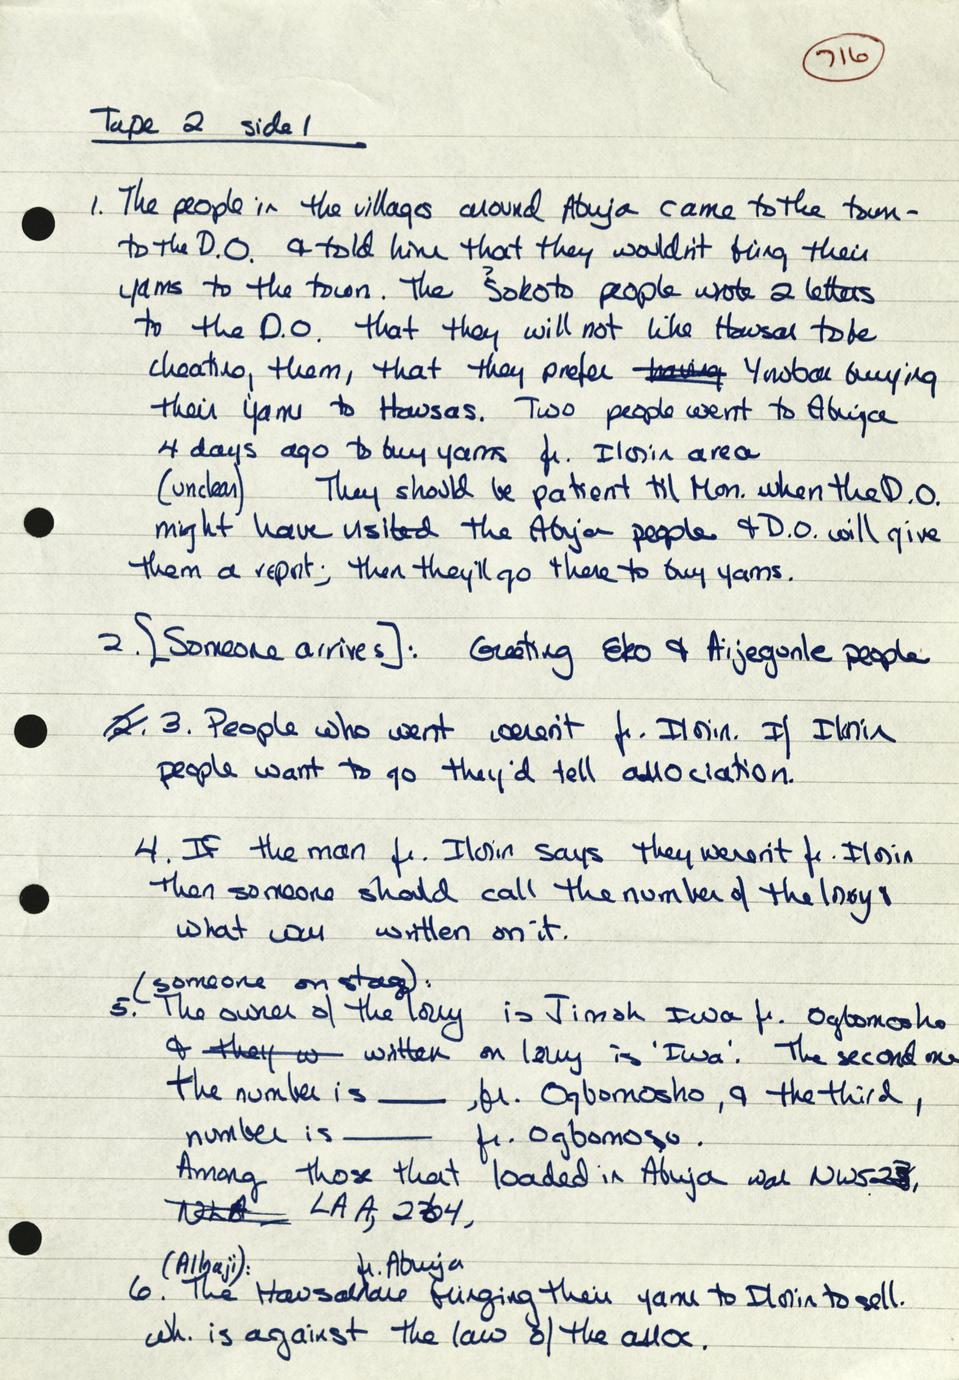 716
Tape 2 side 1
1. The people in the villages around Abuja came to the town -
to the D.O. & told him that they wouldn't bring their
yams to the town. The ?Sokoto people wrote 2 letters
to the D.O. that they will not like Hausas to be
cheating, them, that they prefer having Yorubas buying
their yams to Hausas. Two people went to Abuja
4 days ago to buy yams fr. Ilorin area
(unclear) They should be patient til Mon. when the D.O.
might have visited the Abuja people & D.O. will give
them a report; then they'll go there to buy yams.
2. [Someone arrives]: Greeting Eko & Aijegunle people
2. 3. People who went weren't fr. Ilorin. If Ilorin
people want to go they'd tell association.
4. If the man fr. Ilorin says they weren't fr. Ilorin
then someone should call the number of the lorry &
what was written on it.
(someone on stage):
5. The owner of the lorry is Jimoh Iwa fr. Ogbomosho
& they w written on lorry is 'Iwa'. The second one
the number is ____ , fr. Ogbomosho, & the third,
number is ____ fr. Ogbomoso.
Among those that loaded in Abuja was NW5
LAA,
(Alhaji): fr. Abuja
6. The Hausas are bringing their yams to Ilorin to sell.
wh. is against the law of the assoc.